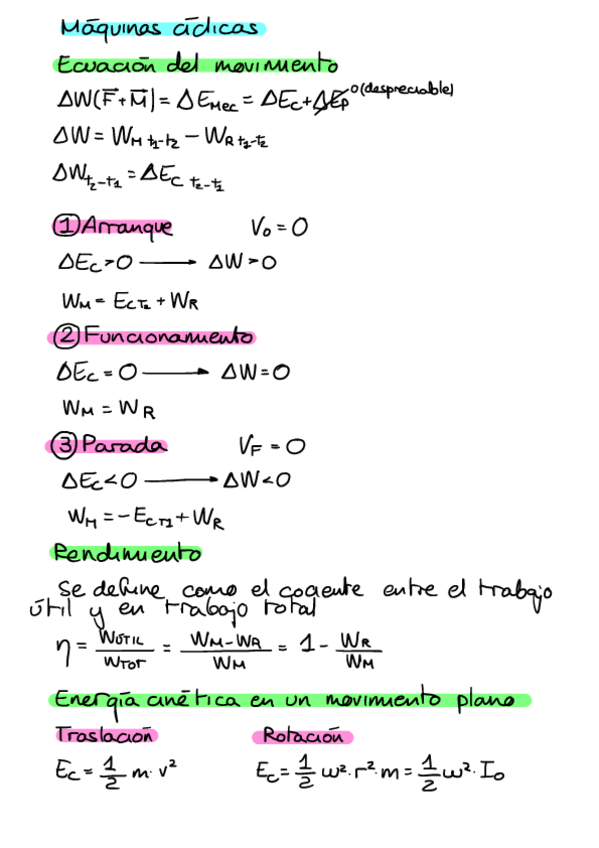 Máquinas cíclicas
Ecuación del movimiento
ΔW(F⃗+M⃗) = ΔE_Mec = ΔE_C + ΔE_P 0 (despreciable)
ΔW = W_M t₁-t₂ − W_R t₂-t₂
ΔW_t₂-t₁ = ΔE_C t₂-t₁
① Arranque V₀ = 0
ΔE_C > 0 ⟶ ΔW > 0
W_M = E_CT₂ + W_R
② Funcionamiento
ΔE_C = 0 ⟶ ΔW = 0
W_M = W_R
③ Parada V_F = 0
ΔE_C < 0 ⟶ ΔW < 0
W_M = −E_CT1 + W_R
Rendimiento
Se define como el cociente entre el trabajo
útil y en trabajo total
η = W_ÚTIL / W_TOT = (W_M − W_R) / W_M = 1 − W_R / W_M
Energía cinética en un movimiento plano
Traslación Rotación
E_C = 1/2 m · v² E_C = 1/2 ω² · r² · m = 1/2 ω² · I₀